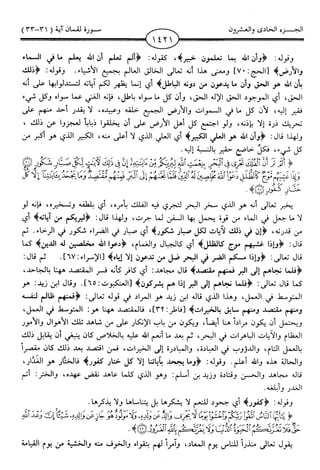 الجزء الحادي والعشرون
١٤٢١
سورة لقمان آية (٣١-٣٣)
وقوله: ﴿وأن الله بما تعملون خبير﴾، كقوله: ﴿ألم تعلم أن الله يعلم ما في السماء
والأرض﴾ [الحج:٧٠] ومعنى هذا أنه تعالى الخالق العالم بجميع الأشياء. وقوله: ﴿ذلك
بأن الله هو الحق وأن ما يدعون من دونه الباطل﴾ أي إنما يظهر لكم آياته لتستدلوابها على أنه
الحق، أي الموجود الحق الإله الحق، وأن كل ما سواه باطل، فإنه الغني عما سواه وكل شيء
فقير إليه، لأن كل ما في السموات والأرض الجميع خلقه وعبيده، لا يقدر أحد منهم على
تحريك ذرة إلا بإذنه، ولو اجتمع كل أهل الأرض على أن يخلقوا ذباباً لعجزوا عن ذلك،
ولهذا قال: ﴿وأن الله هو العلي الكبير﴾ أي العلي الذي لا أعلى منه، الكبير الذي هو أكبر من
كل شيء، فكلٌ خاضع حقير بالنسبة إليه.
﴿ أَلَمْ تَرَ أَنَّ الْفُلْكَ تَجْرِي فِي الْبَحْرِ بِنِعْمَتِ اللَّهِ لِيُرِيَكُم مِّنْ آيَاتِهِ إِنَّ فِي ذَٰلِكَ لَآيَاتٍ لِّكُلِّ صَبَّارٍ شَكُورٍ
وَإِذَا غَشِيَهُم مَّوْجٌ كَالظُّلَلِ دَعَوُا اللَّهَ مُخْلِصِينَ لَهُ الدِّينَ فَلَمَّا نَجَّاهُمْ إِلَى الْبَرِّ فَمِنْهُم مُّقْتَصِدٌ وَمَا يَجْحَدُ بِآيَاتِنَا إِلَّا كُلُّ
خَتَّارٍ كَفُورٍ ﴾
يخبر تعالى أنه هو الذي سخر البحر لتجري فيه الفلك بأمره، أي بلطفه وتسخيره، فإنه لو
لا ما جعل في الماء من قوة يحمل بها السفن لما جرت، ولهذا قال: ﴿ليريكم من آياته﴾ أي
من قدرته، ﴿إن في ذلك لآيات لكل صبار شكور﴾ أي صبار في الضراء شكور في الرخاء. ثم
قال: ﴿وإذا غشيهم موج كالظلل﴾ أي كالجبال والغمام، ﴿دعوا الله مخلصين له الدين﴾ كما
قال تعالى: ﴿وإذا مسكم الضر في البحر ضل من تدعون إلا إياه﴾ [الإسراء:٦٧]. ثم قال:
﴿فلما نجاهم إلى البر فمنهم مقتصد﴾ قال مجاهد: أي كافر كأنه فسر المقتصد ههنا بالجاحد،
كما قال تعالى: ﴿فلما نجاهم إلى البر إذا هم يشركون﴾ [العنكبوت:٦٥]. وقال ابن زيد: هو
المتوسط في العمل، وهذا الذي قاله ابن زيد هو المراد في قوله تعالى: ﴿فمنهم ظالم لنفسه
ومنهم مقتصد ومنهم سابق بالخيرات﴾ [فاطر:٣٢]، فالمقتصد ههنا هو: المتوسط في العمل،
ويحتمل أن يكون مراداً هنا أيضاً، ويكون من باب الإنكار على من شاهد تلك الأهوال والأمور
العظام والآيات الباهرات في البحر، ثم بعد ما أنعم الله عليه بالخلاص كان ينبغي أن يقابل ذلك
بالعمل التام، والدؤوب في العبادة، والمبادرة إلى الخيرات، فمن اقتصد بعد ذلك كان مقصراً
والحالة هذه والله أعلم. وقوله: ﴿وما يجحد بآياتنا إلا كل ختار كفور﴾ فالختّار هو الغدّار،
قاله مجاهد والحسن وقتادة وزيد بن أسلم: وهو الذي كلما عاهد نقض عهده، والختر: أتم
الغدر وأبلغه.
وقوله: ﴿كفور﴾ أي جحود للنعم لا يشكرها بل يتناساها ولا يذكرها.
﴿ يَا أَيُّهَا النَّاسُ اتَّقُوا رَبَّكُمْ وَاخْشَوْا يَوْمًا لَّا يَجْزِي وَالِدٌ عَن وَلَدِهِ وَلَا مَوْلُودٌ هُوَ جَازٍ عَن وَالِدِهِ شَيْئًا إِنَّ وَعْدَ اللَّهِ
حَقٌّ فَلَا تَغُرَّنَّكُمُ الْحَيَاةُ الدُّنْيَا وَلَا يَغُرَّنَّكُم بِاللَّهِ الْغَرُورُ ﴾
يقول تعالى منذراً للناس يوم المعاد، وآمراً لهم بتقواه والخوف منه والخشية من يوم القيامة